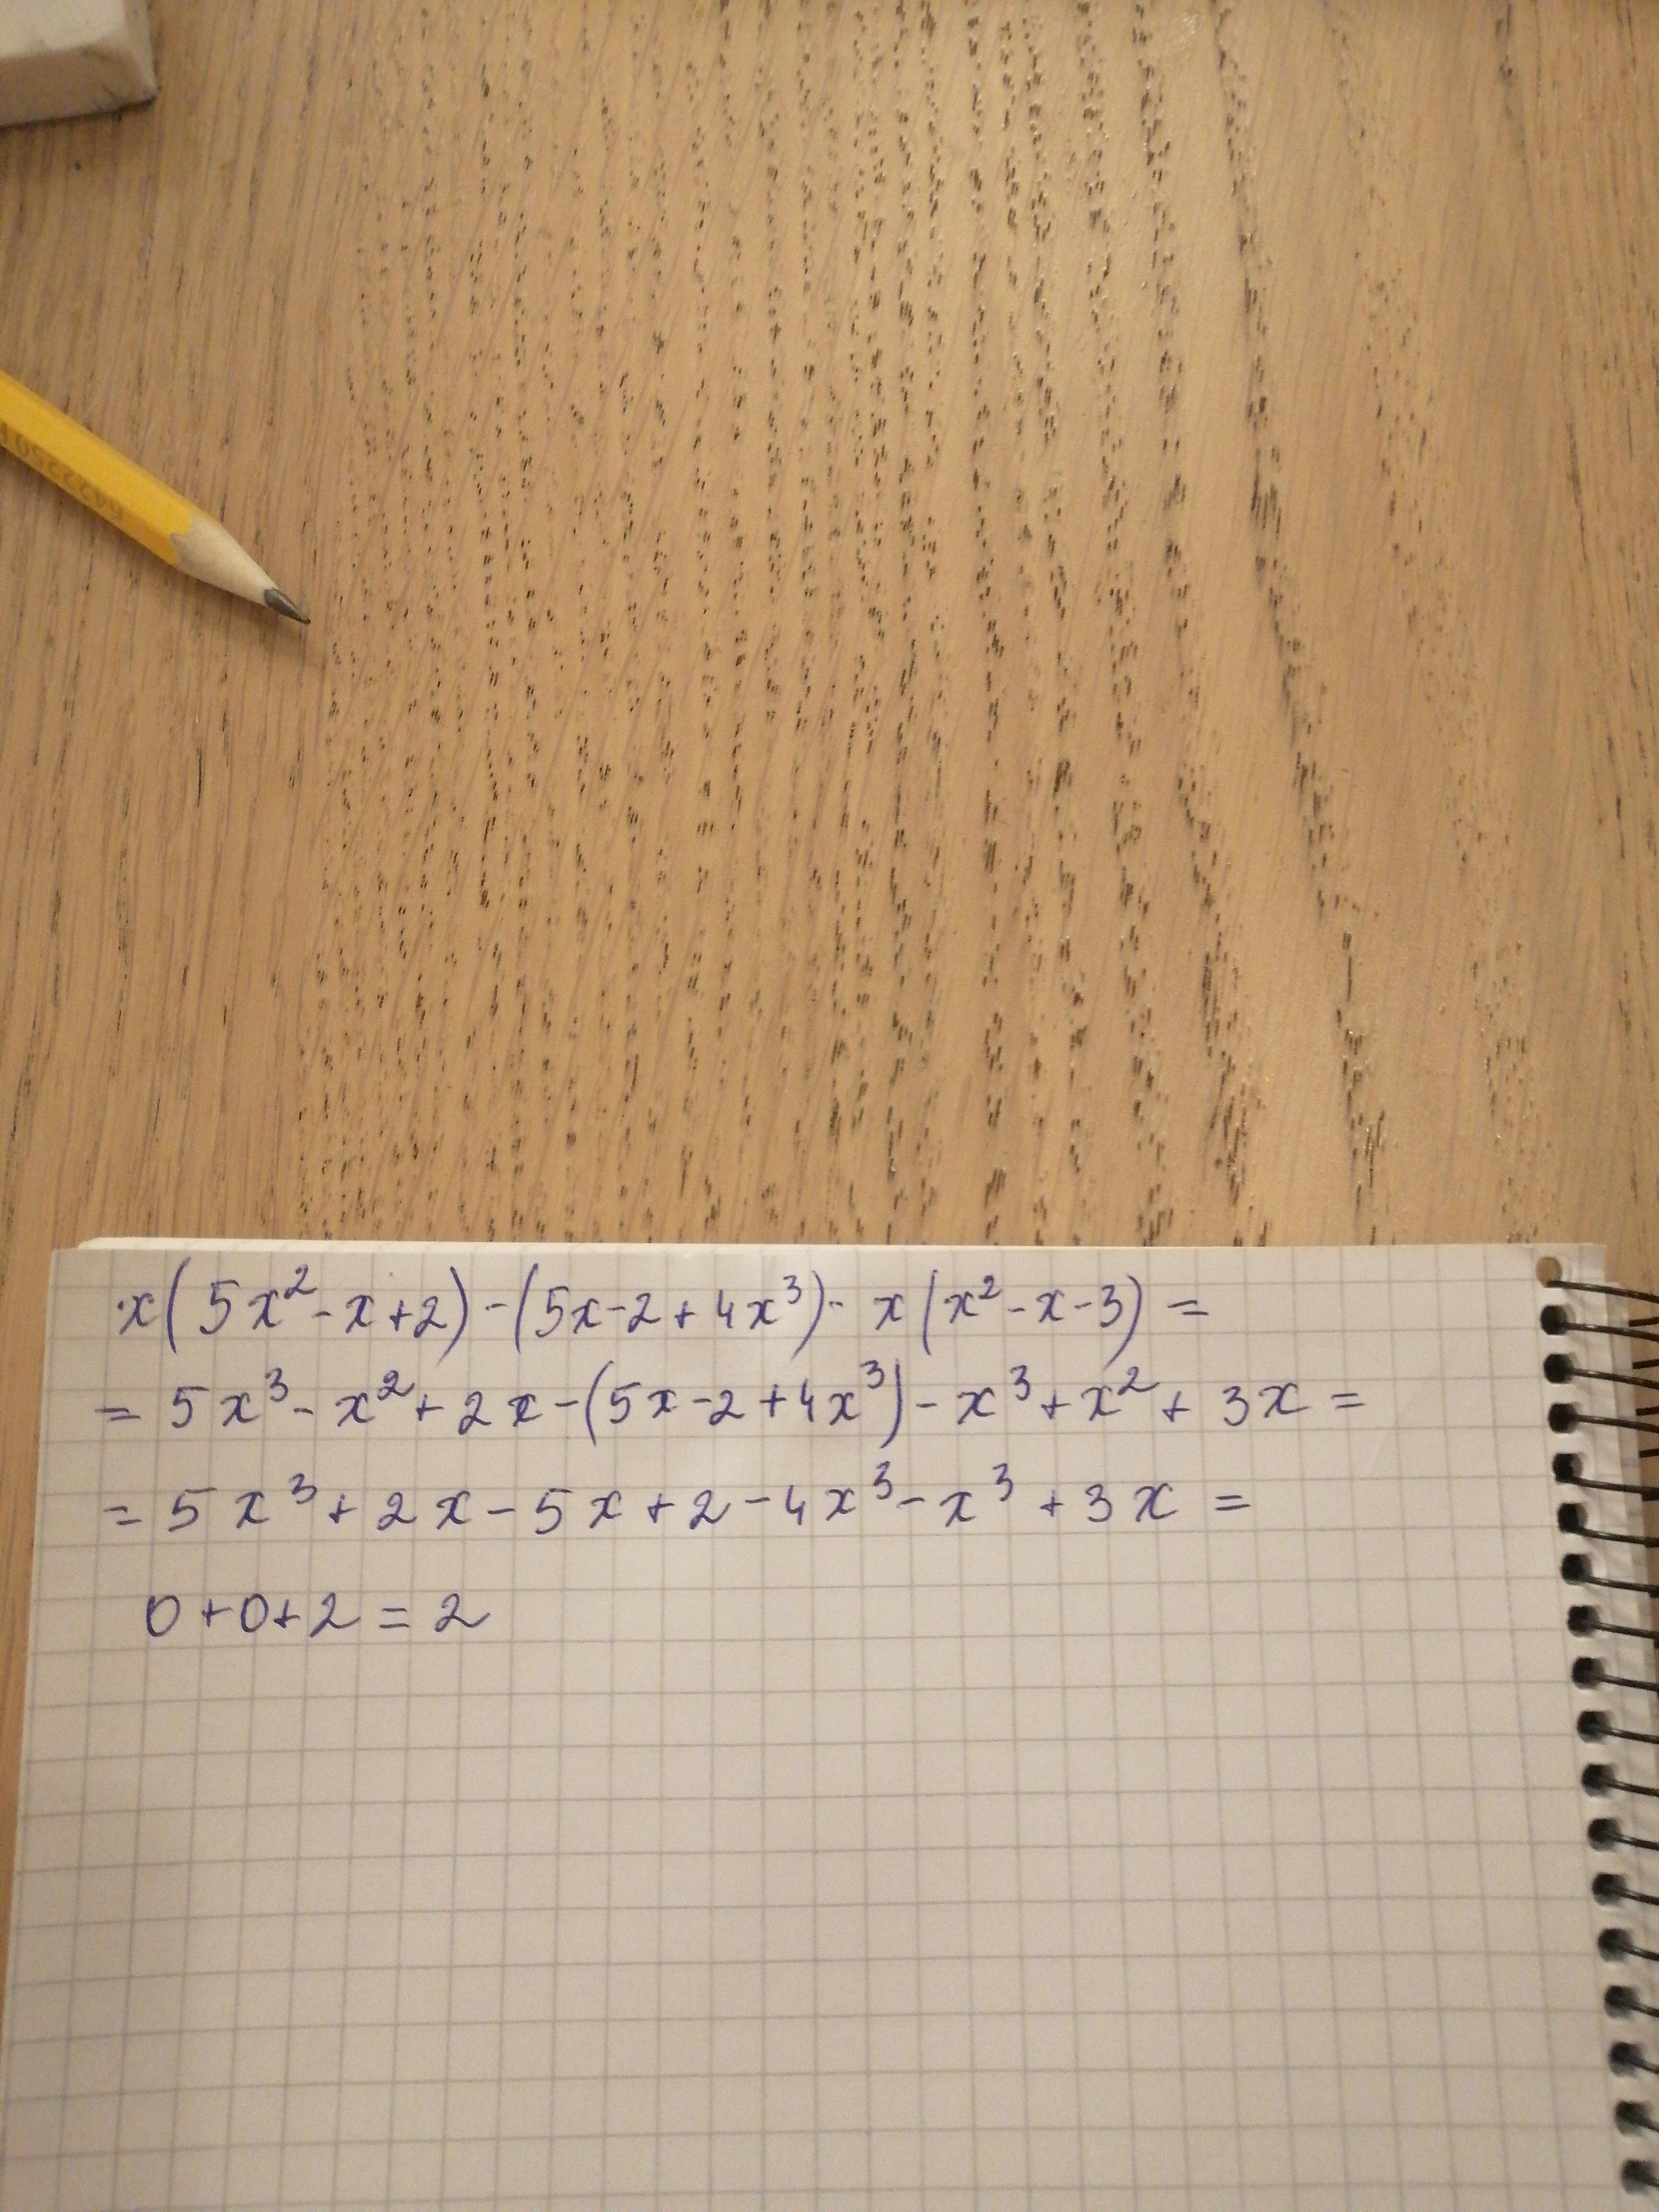 x(5x²-x+2)-(5x-2+4x³)-x(x²-x-3)=
=5x³-x²+2x-(5x-2+4x³)-x³+x²+3x=
=5x³+2x-5x+2-4x³-x³+3x=
0+0+2=2